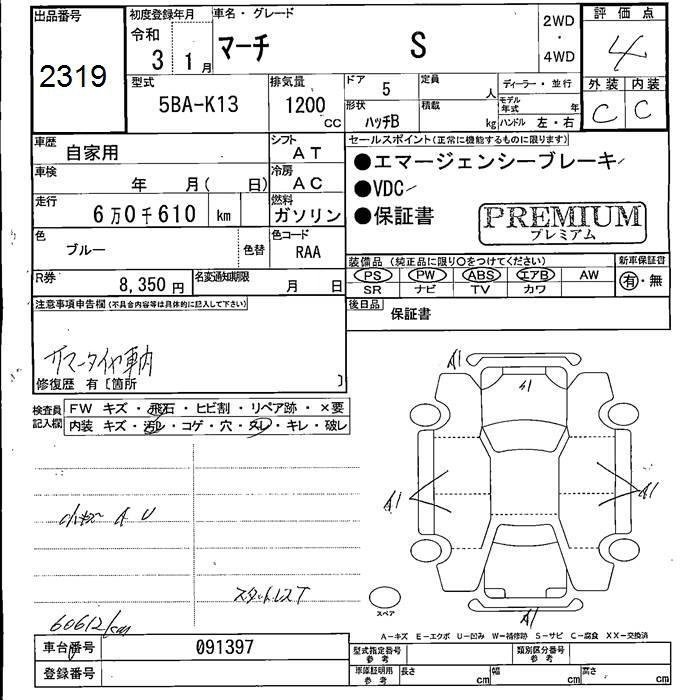 出品番号
2319
初度登録年月
令和
3 1月
車名・グレード
マーチ S
2WD
・
4WD
評価点
4
外装 内装
C C
型式
5BA-K13
排気量
1200
CC
ドア
5
定員
人
ディーラー・並行
形状
ハッチB
積載
kg
モデル年式
年
ハンドル 左・右
車歴
自家用
シフト
AT
車検
年 月( 日)
冷房
AC
走行
6万0千610 km
燃料
ガソリン
色
ブルー
色替
色コード
RAA
R券
8,350円
名変通知期限
月 日
セールスポイント(正常に機能するものに限ります)
●エマージェンシーブレーキ
●VDC
●保証書
PREMIUM
プレミアム
装備品(純正品に限り○をつけてください)
PS PW ABS エアB AW
SR ナビ TV カワ
新車保証書
有・無
後日品
保証書
注意事項申告欄(不具合内容等は具体的に記入して下さい)
サマータイヤ車内
修復歴 有〔箇所 〕
検査員
記入欄
FW キズ・飛石・ヒビ割・リペア跡・×要
内装 キズ・汚レ・コゲ・穴・スレ・キレ・破レ
小キズ A U
スタットレスT
60612km
A1
S1
A1
A1
A1
スペア
A-キズ E-エクボ U-凹み W-補修跡 S-サビ C-腐食 XX-交換済
車台番号
091397
登録番号
型式指定番号
参考
類別区分番号
参考
車庫証明用
参考
長さ cm
幅 cm
高さ cm